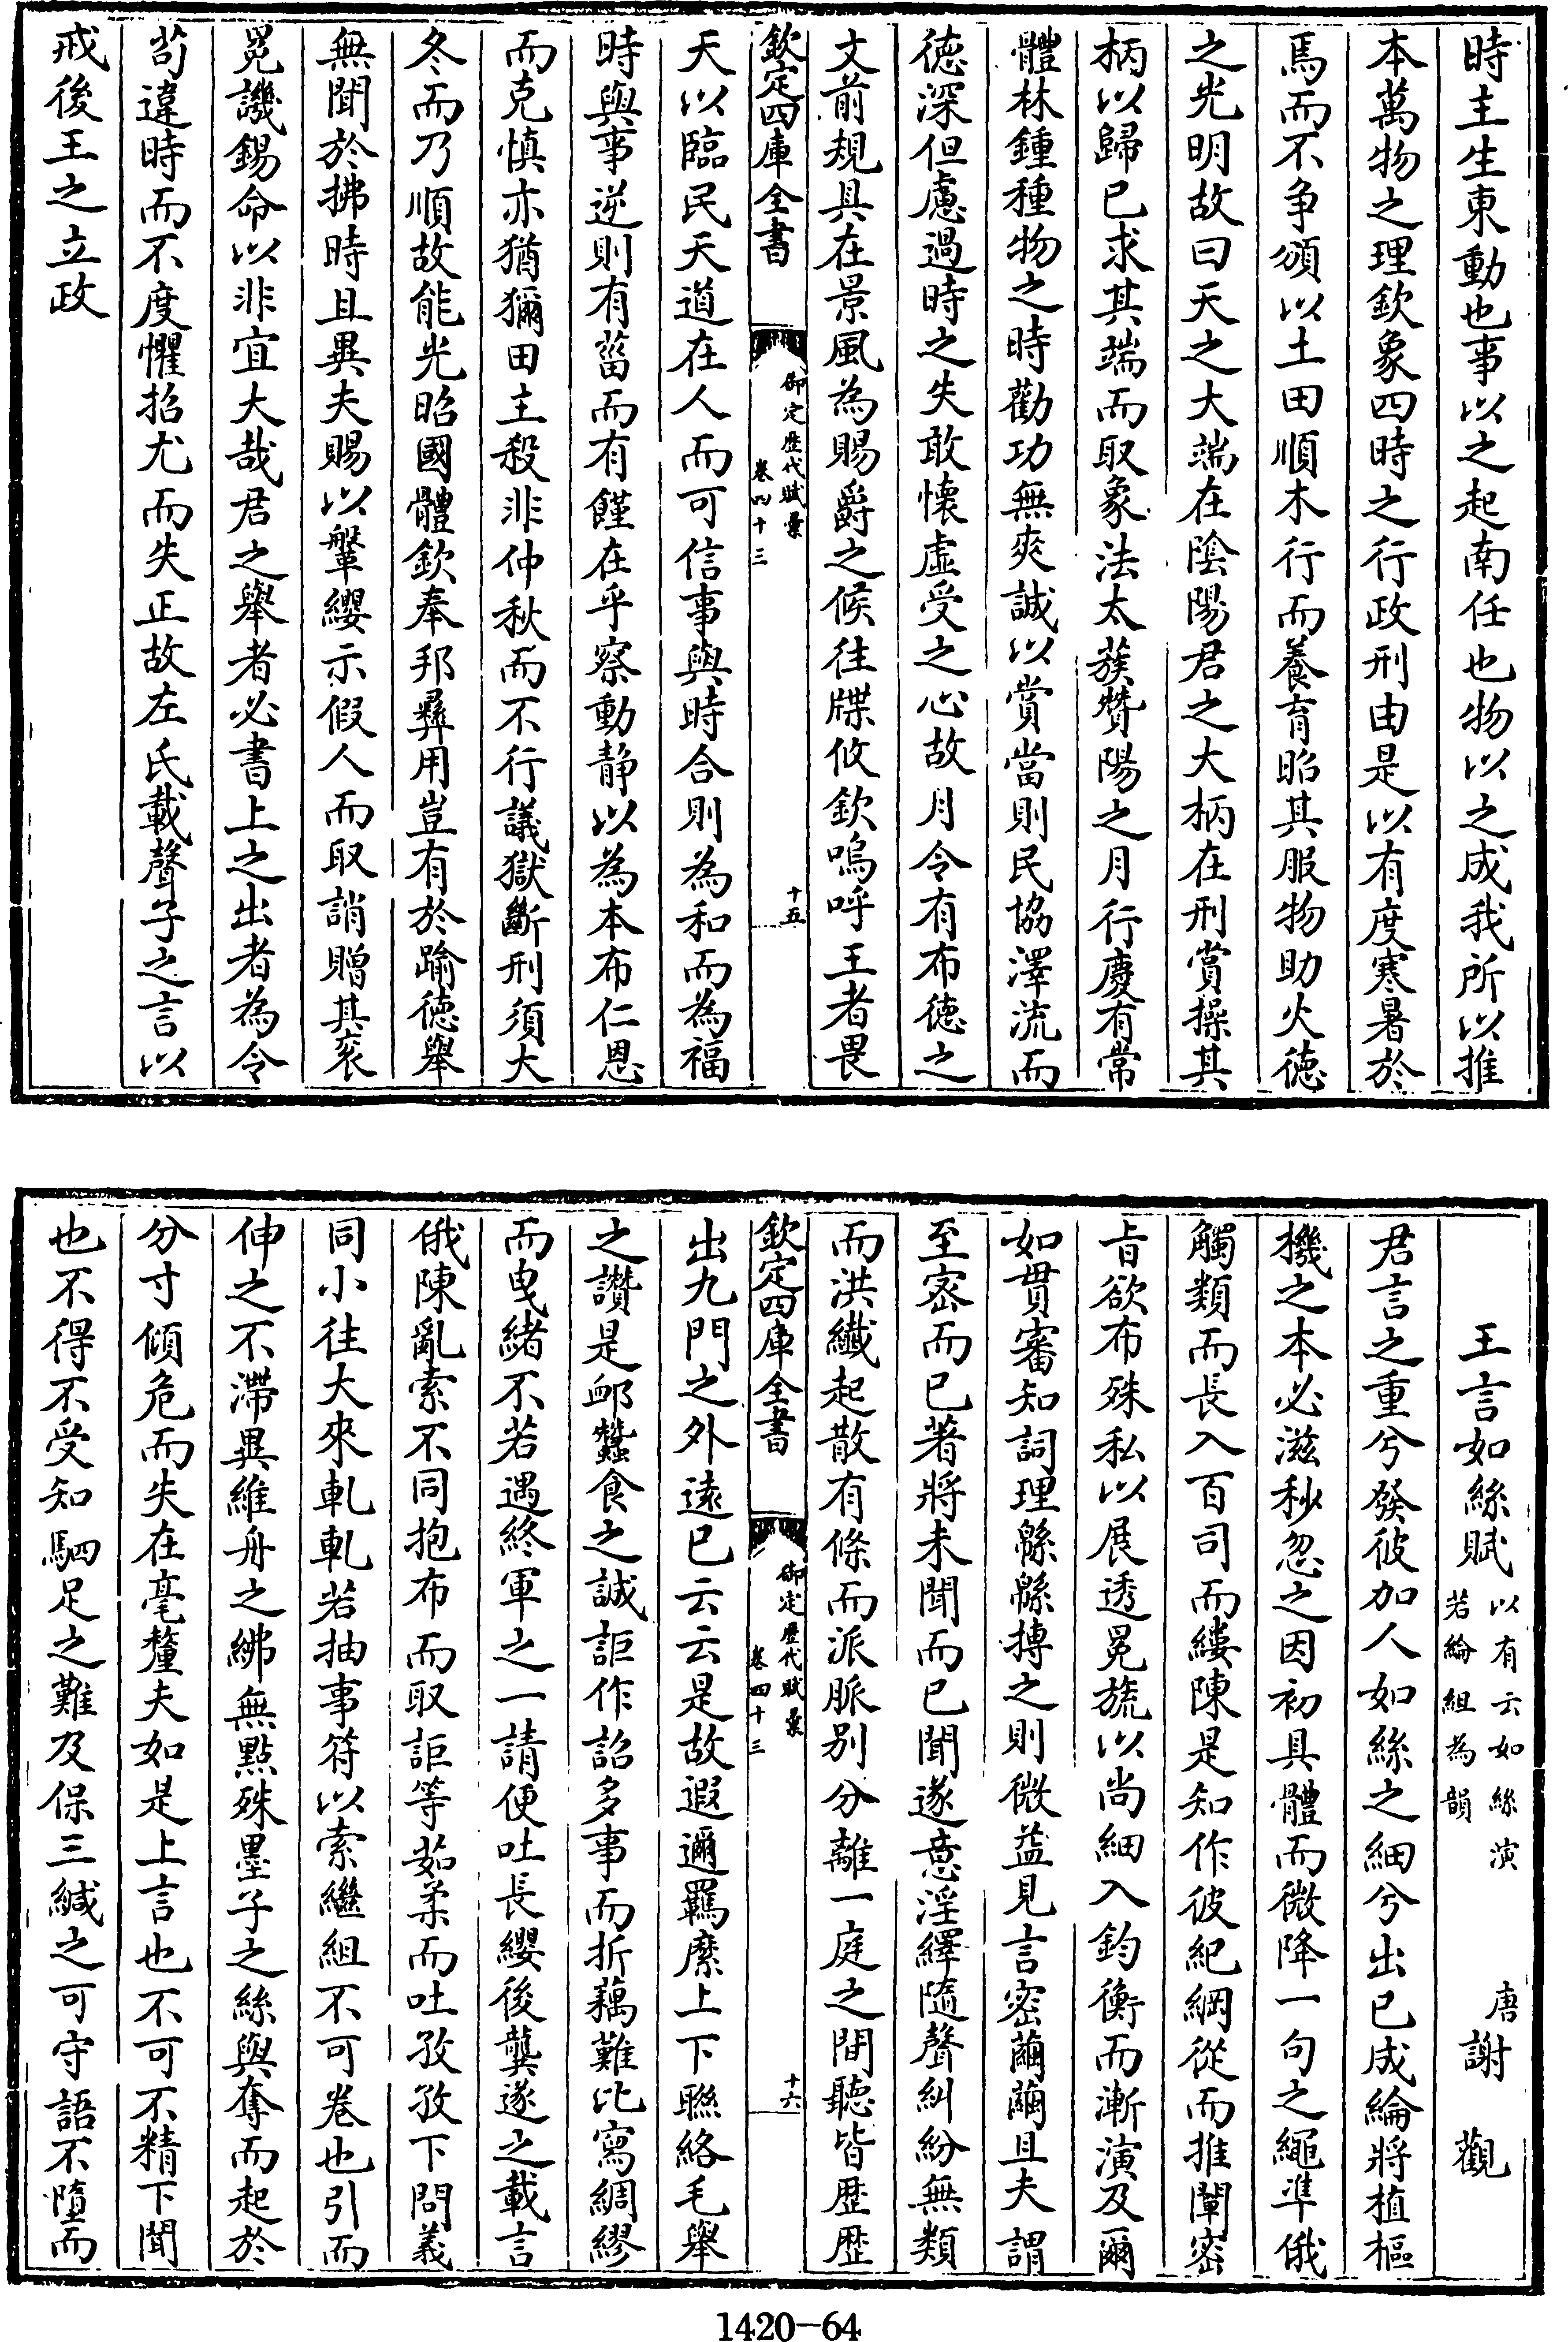 時主生東動也事以之起南任也物以之成我所以推
本萬物之理欽象四時之行政刑由是以有度寒暑於
焉而不争頒以土田順木行而養育昭其服物助火德
之光明故曰天之大端在陰陽君之大柄在刑賞操其
柄以歸已求其端而取象法太蔟贊陽之月行慶有常
體林鍾種物之時勸功無爽誠以賞當則民協澤流而
德深但慮過時之失敢懷虚受之心故月令有布德之
文前規具在景風為賜爵之候往牒攸欽嗚呼王者畏
欽定四庫全書
御定歴代賦彚
卷四十三
十五
天以臨民天道在人而可信事與時合則為和而為福
時與事逆則有菑而有饉在乎察動静以為本布仁恩
而克慎亦猶獮田主殺非仲秋而不行議獄斷刑須大
冬而乃順故能光昭國體欽奉邦彞用豈有於踰德舉
無聞於拂時且異夫賜以鞶纓示假人而取誚贈其衮
冕譏錫命以非宜大哉君之舉者必書上之出者為令
茍違時而不度懼招尤而失正故左氏載聲子之言以
戒後王之立政
王言如絲賦
以有云如絲演
若綸組為韻
唐謝觀
君言之重兮發彼加人如絲之細兮出已成綸將植樞
機之本必滋秒忽之因初具體而微降一句之繩準俄
觸類而長入百司而縷陳是知作彼紀綱從而推闡密
㫖欲布殊私以展透冕旒以尚細入鈞衡而漸演及爾
如貫審知詞理緜緜摶之則微益見言密繭繭且夫謂
至密而已著將未聞而已聞遂意淫繹隨聲糾紛無類
而洪纎起散有條而派脈别分離一庭之間聽皆歴歴
欽定四庫全書
御定歴代賦彚
卷四十三
十六
出九門之外逺已云云是故遐邇羈縻上下聯絡毛舉
之讚是邮蠶食之誠詎作詔多事而折藕難比寫綢繆
而曳緒不若遇終軍之一請便吐長纓後龔遂之載言
俄陳亂索不同抱布而取詎等茹柔而吐孜孜下問義
同小往大來軋軋若抽事符以索繼組不可卷也引而
伸之不滯異維舟之紼無點殊墨子之絲與奪而起於
分寸傾危而失在毫釐夫如是上言也不可不精下聞
也不得不受知駟足之難及保三緘之可守語不墮而
1420-64